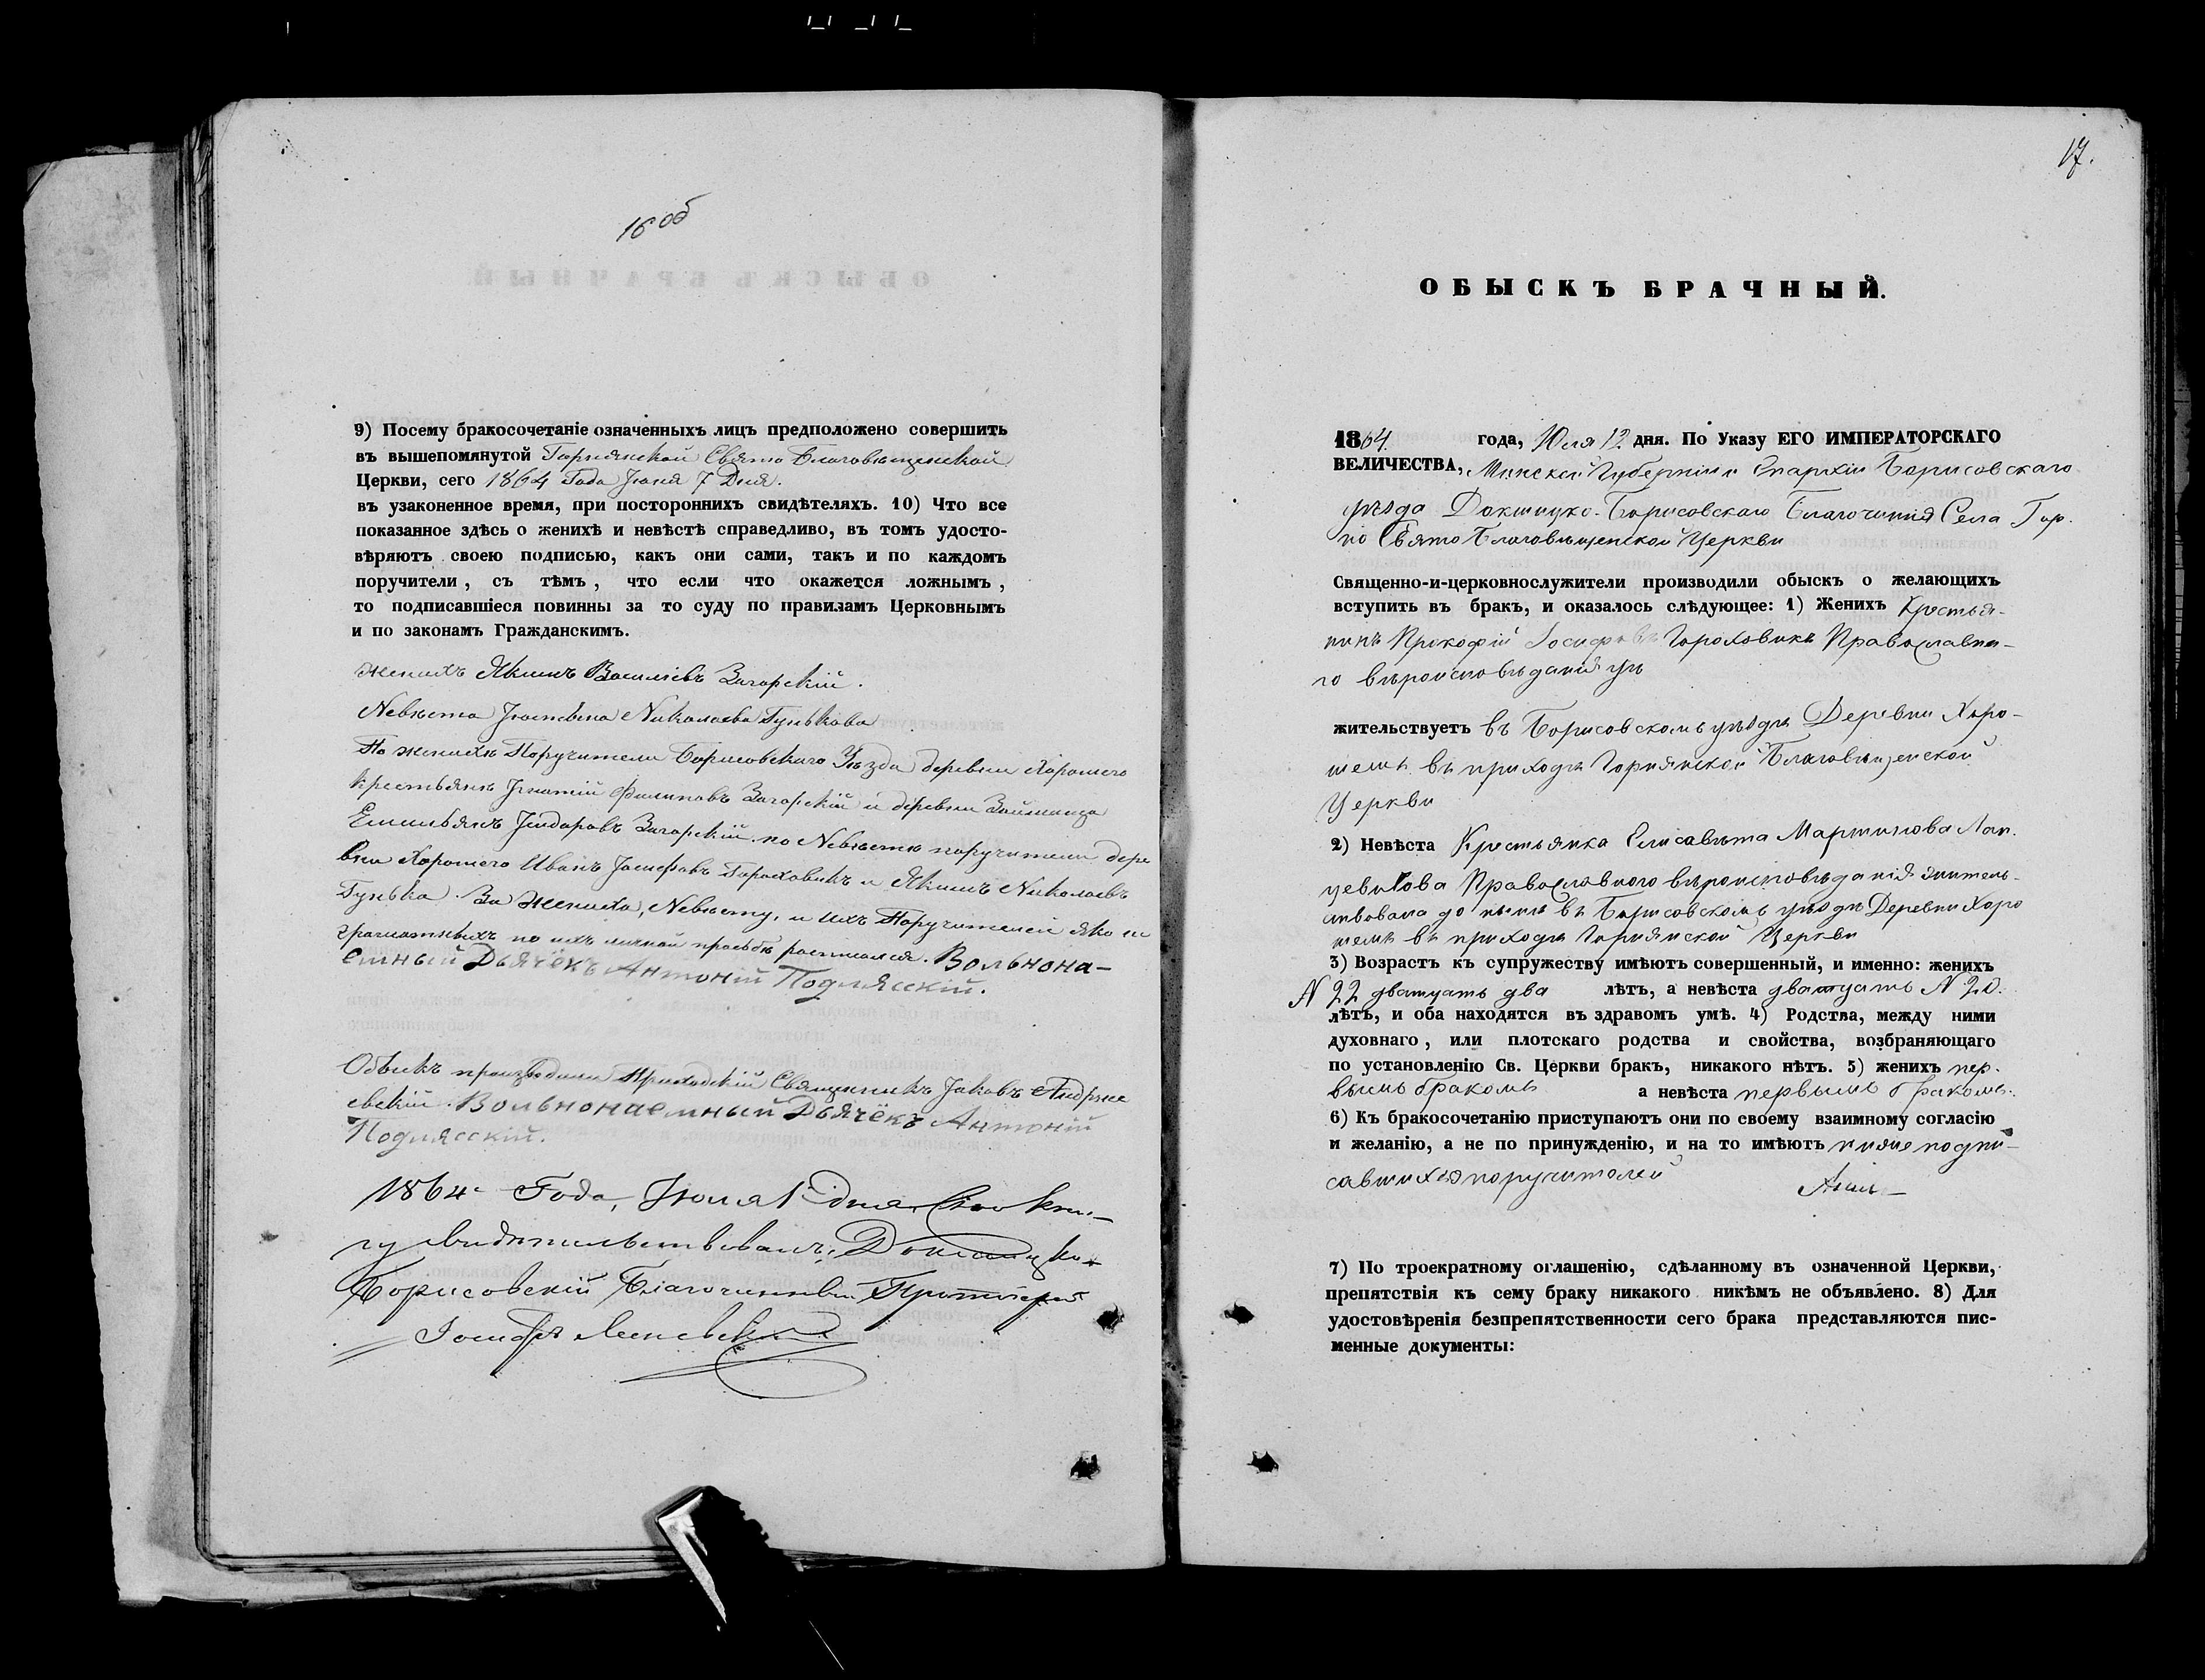 16 об
9) Посему бракосочетаніе означенныхъ лицъ предположено совершить
въ вышепомянутой Горнянской Свято Благовѣщенской
Церкви, сего 1864 Года Іюня 7 Дня.
въ узаконенное время, при постороннихъ свидѣтеляхъ. 10) Что все
показанное здѣсь о женихѣ и невѣстѣ справедливо, въ томъ удосто-
вѣряютъ своею подписью, какъ они сами, такъ и по каждомъ
поручители, съ тѣмъ, что если что окажется ложнымъ,
то подписавшіеся повинны за то суду по правиламъ Церковнымъ
и по законамъ Гражданскимъ.
женихъ Якимъ Васильевъ Загорскій.
Невѣста Николаева Гунькова
По женихѣ Поручители Борисовскаго Уѣзда деревни Хорошего
Крестьянъ Игнатій Филиповъ Загорскій и деревни
Емильянъ Загорскій. по Невѣстѣ поручители дере
вни Хорошего Иванъ Іосифовъ Гороховикъ и Якимъ Николаевъ
Гунька. За Жениха, Невѣсту, и ихъ Поручителей яко не
грамотныхъ по ихъ личной прозьбѣ росписался. Вольнона-
емный Дьячёкъ Антоній Подлясскій.
Обыскъ производили Приходскій Священникъ Іаковъ Андрее
вскій. Вольнонаемный Дьячёкъ Антоній
Подлясскій.
1864 Года, Іюля 1 дня Сію кни-
гу свидѣтельствовалъ, Докшицко-
Борисовскій Благочинный Протоіерей
Іосифъ
17.
ОБЫСКЪ БРАЧНЫЙ.
1864 года, Юля 12 дня. По Указу ЕГО ИМПЕРАТОРСКАГО
ВЕЛИЧЕСТВА, Минской Губерніи и Епархіи Борисовскаго
уѣзда Докшицко-Борисовскаго Благочинія Села Гор.
но Свято Благовѣщенской Церкви
Священно-и-церковнослужители производили обыскъ о желающихъ
вступить въ бракъ, и оказалось слѣдующее: 1) Женихъ Крестья-
нинъ Прокофій Іосифовъ Гороховикъ Православна-
го вѣроисповѣданія
жительствуетъ въ Борисовскомъ уѣздѣ Деревни Хоро-
шемъ въ приходѣ Горнянской Благовѣщенской
Церкви
2) Невѣста Крестьянка Елисавѣта Мартинова Лап.
цевичова Православного вѣроисповѣданія житель-
ствовала до нынѣ въ Борисовскомъ уѣздѣ Деревни Хоро
шемъ въ приходѣ Горнянской Церкви
3) Возрастъ къ супружеству имѣютъ совершенный, и именно: женихъ
N 22 дватцать два лѣтъ, а невѣста дватцать N 20.
лѣтъ, и оба находятся въ здравомъ умѣ. 4) Родства, между ними
духовнаго, или плотскаго родства и свойства, возбраняющаго
по установленію Св. Церкви бракъ, никакого нѣтъ. 5) женихъ пер-
вымъ бракомъ а невѣста первымъ бракомъ.
6) Къ бракосочетанію приступаютъ они по своему взаимному согласію
и желанію, а не по принужденію, и на то имѣютъ ниже подпи-
савшихся поручителей
7) По троекратному оглашенію, сдѣланному въ означенной Церкви,
препятствія къ сему браку никакого никѣмъ не объявлено. 8) Для
удостовѣренія безпрепятственности сего брака представляются пис-
менные документы: